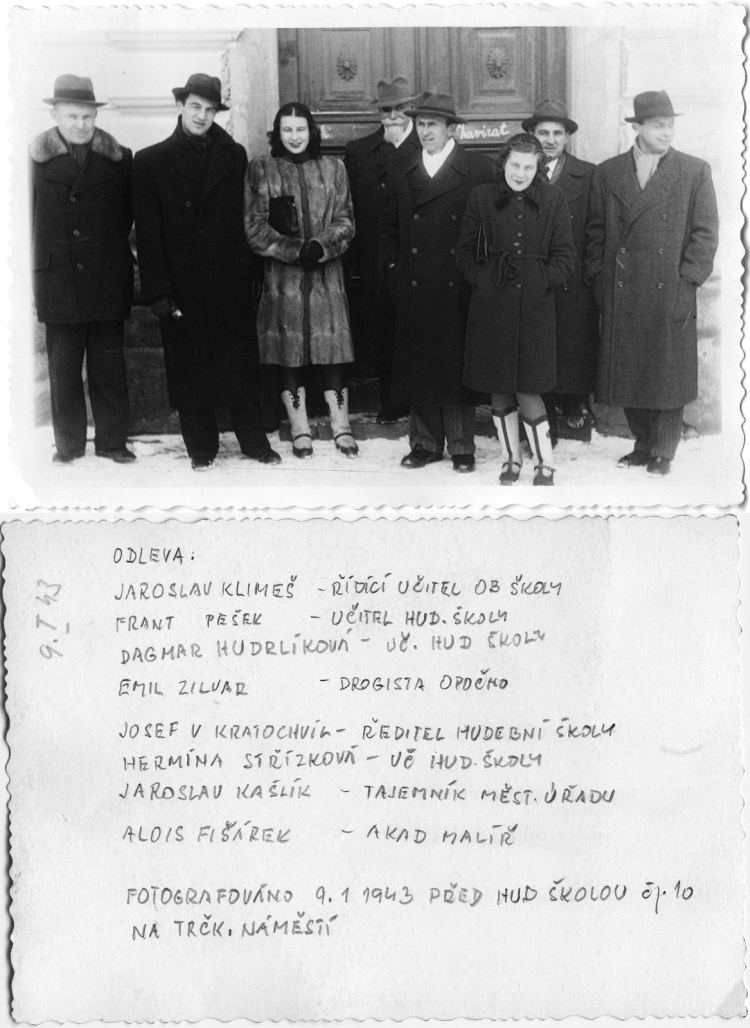 Zavírat
ODLEVA:
JAROSLAV KLIMEŠ - ŘÍDÍCÍ UČITEL OB ŠKOLY
FRANT PEŠEK - UČITEL HUD. ŠKOLY
DAGMAR HUDRLÍKOVÁ - UČ. HUD ŠKOLY
EMIL ZILVAR - DROGISTA OPOČNO
JOSEF V KRATOCHVÍL - ŘEDITEL HUDEBNÍ ŠKOLY
HERMÍNA STŘÍZKOVÁ - UČ HUD. ŠKOLY
JAROSLAV KAŠLÍK - TAJEMNÍK MĚST. ÚŘADU
ALOIS FIŠÁREK - AKAD MALÍŘ
FOTOGRAFOVÁNO 9.1 1943 PŘED HUD ŠKOLOU čj. 10
NA TRČK. NÁMĚSTÍ
9. I 43